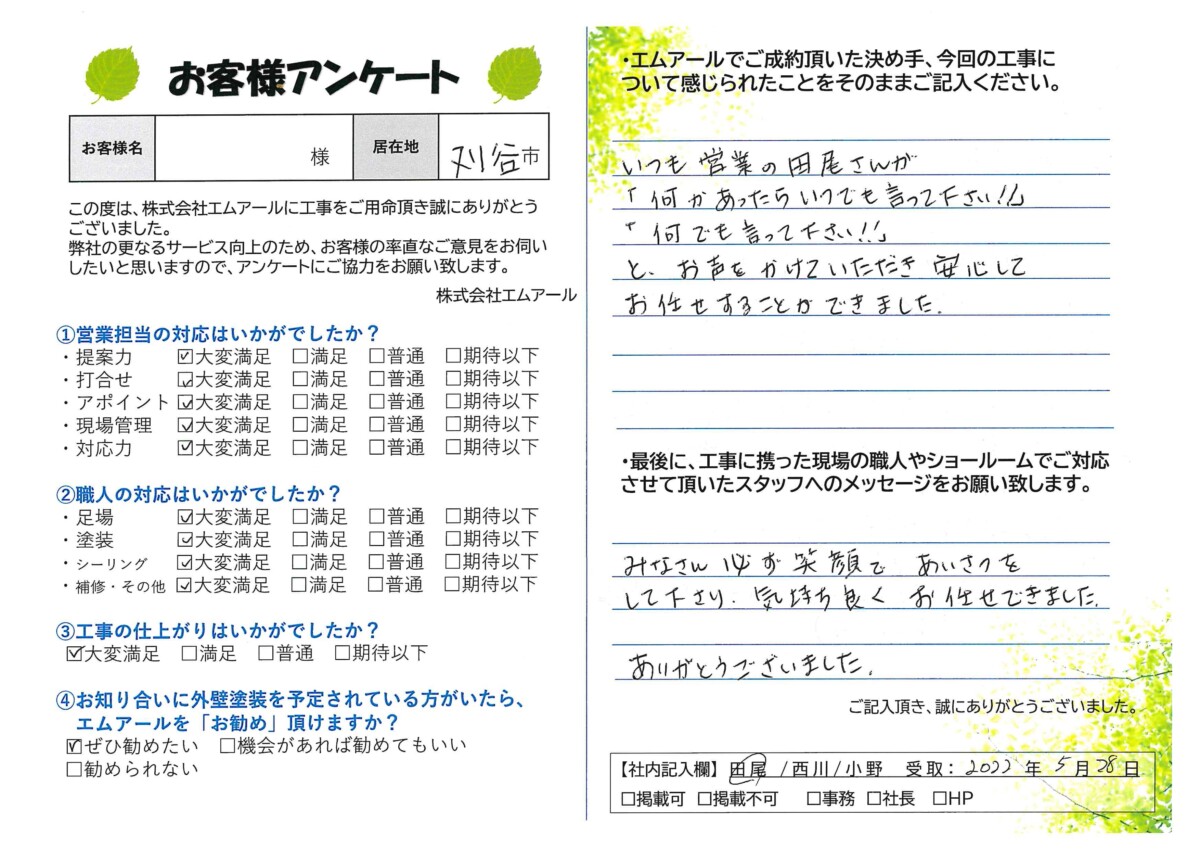 お客様アンケート
お客様名 様 居在地 刈谷市
この度は、株式会社エムアールに工事をご用命頂き誠にありがとう
ございました。
弊社の更なるサービス向上のため、お客様の率直なご意見をお伺い
したいと思いますので、アンケートにご協力をお願い致します。
株式会社エムアール
①営業担当の対応はいかがでしたか？
・提案力 ☑大変満足 □満足 □普通 □期待以下
・打合せ ☑大変満足 □満足 □普通 □期待以下
・アポイント ☑大変満足 □満足 □普通 □期待以下
・現場管理 ☑大変満足 □満足 □普通 □期待以下
・対応力 ☑大変満足 □満足 □普通 □期待以下
②職人の対応はいかがでしたか？
・足場 ☑大変満足 □満足 □普通 □期待以下
・塗装 ☑大変満足 □満足 □普通 □期待以下
・シーリング ☑大変満足 □満足 □普通 □期待以下
・補修・その他 ☑大変満足 □満足 □普通 □期待以下
③工事の仕上がりはいかがでしたか？
☑大変満足 □満足 □普通 □期待以下
④お知り合いに外壁塗装を予定されている方がいたら、
エムアールを「お勧め」頂けますか？
☑ぜひ勧めたい □機会があれば勧めてもいい
□勧められない
・エムアールでご成約頂いた決め手、今回の工事に
ついて感じられたことをそのままご記入ください。
いつも営業の田尾さんが
「何かあったらいつでも言って下さい!!」
「何でも言って下さい!!」
と、お声をかけていただき安心して
お任せすることができました.
・最後に、工事に携った現場の職人やショールームでご対応
させて頂いたスタッフへのメッセージをお願い致します。
みなさん必ず笑顔であいさつを
して下さり、気持ち良くお任せできました.
ありがとうございました.
ご記入頂き、誠にありがとうございました。
【社内記入欄】 田尾 /西川/小野 受取：2022年5月28日
□掲載可 □掲載不可 □事務 □社長 □HP